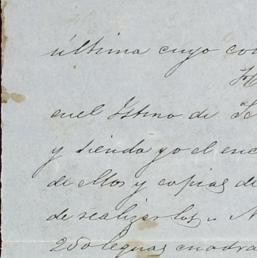 última cuyo con
en el Istmo de
y siendo yo el enc
de ellos y copias de
de realizarlos
250 leguas cuadra